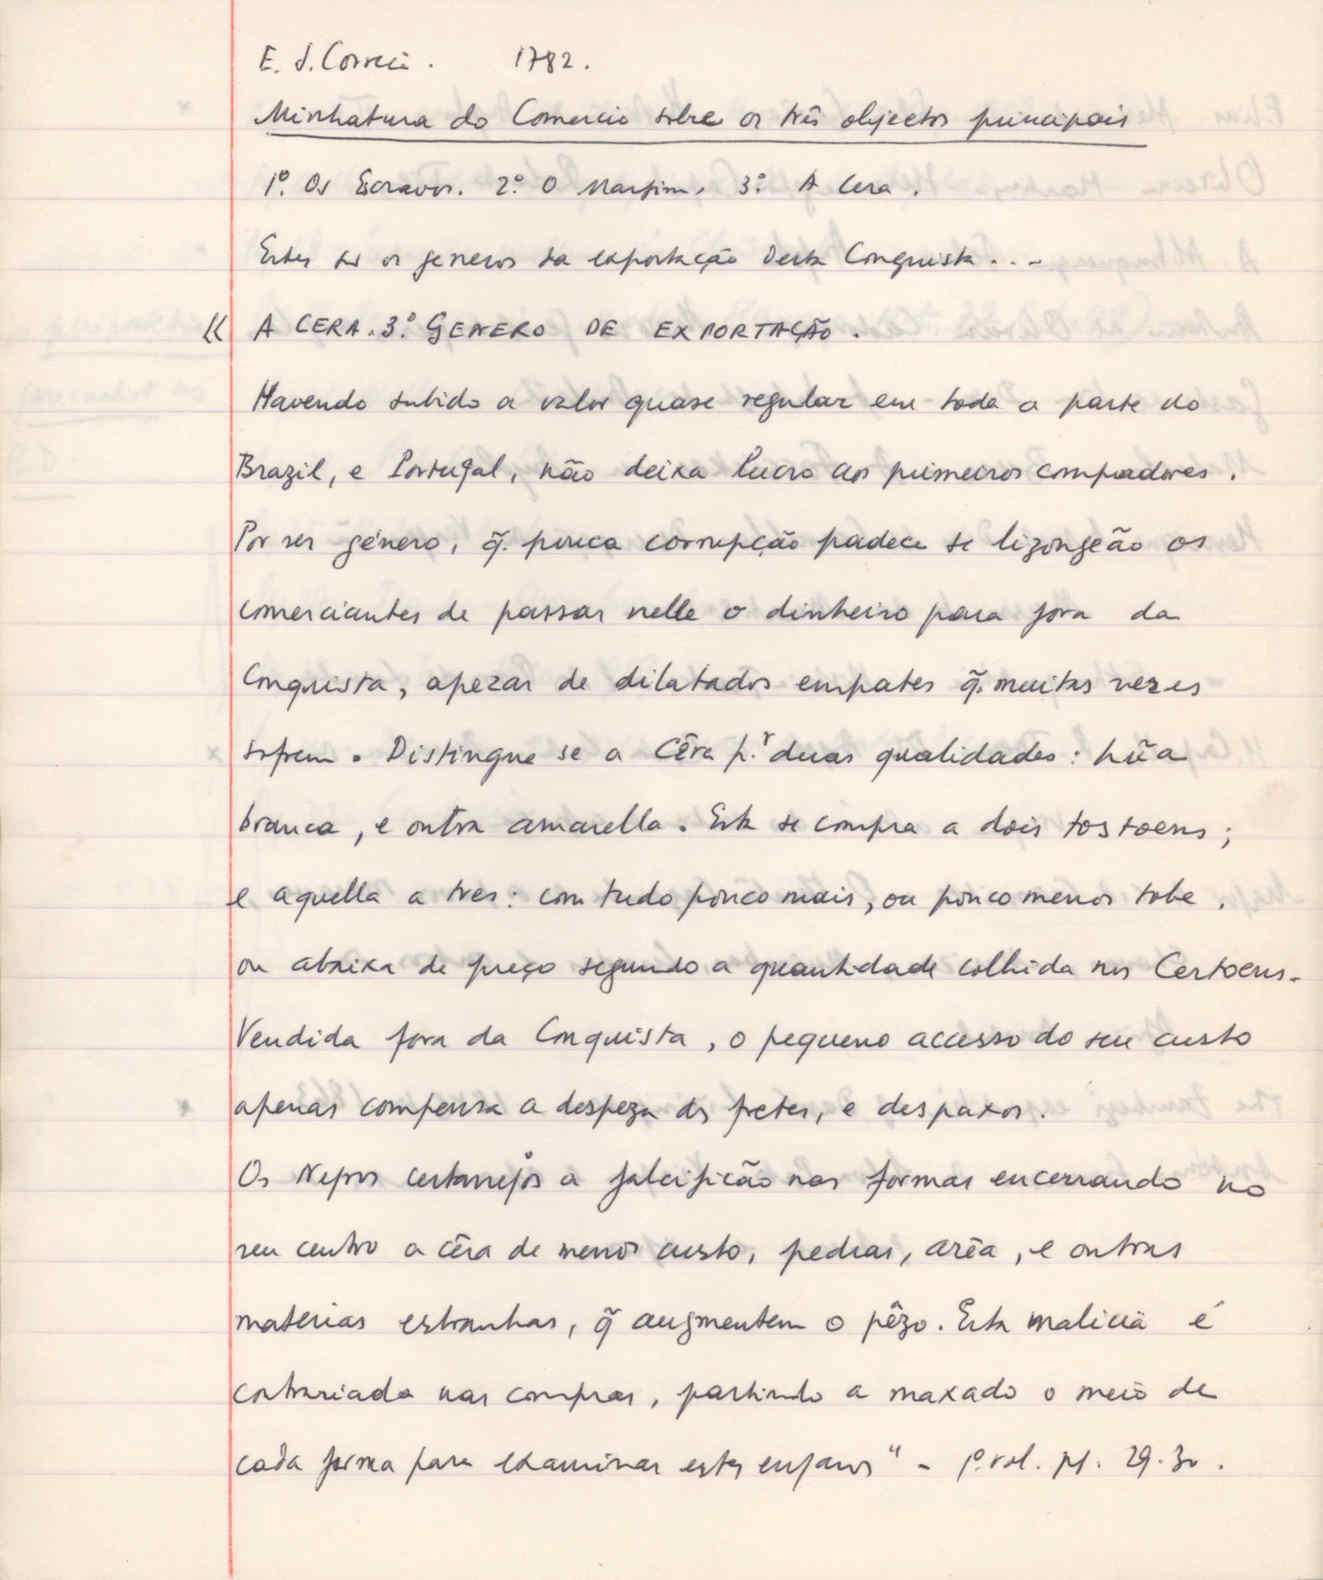 E. S. Correia. 1782.
Minhatura do Comercio sobre os três objectos principais
1º. Os Escravos. 2º. O Marfim. 3º. A Cera.
Estes são os generos da exportação desta Conquista...
« A CERA. 3º. GENERO DE EXPORTAÇÃO.
Havendo subido a valor quase regular em toda a parte do
Brazil, e Portugal, não deixa lucro aos primeiros compradores.
Por ser género, q̃. pouca corrupção padece se lizongeão os
comerciantes de passar nelle o dinheiro para fora da
Conquista, apezar de dilatados empates q̃. muitas vezes
sofrem. Distingue se a Cêra p.r duas qualidades: hũa
branca, e outra amarella. Esta se compra a dois tostoens;
e aquella a tres: com tudo pouco mais, ou pouco menos sobe,
ou abaixa de preço segundo a quantidade colhida nos Certoens.
Vendida fora da Conquista, o pequeno accesso do seu custo
apenas compensa a despeza dos fretes, e despaxos.
Os Negros certanejos a falcificão nas formas encerrando no
seu centro a cêra de menos custo, pedras, arêa, e outras
materias estranhas, q̃ augmentem o pêzo. Esta malicia é
contrariada nas compras, partindo a maxado o meio de
cada forma para examinar estes enganos" - 1º. vol. pp. 29-30.